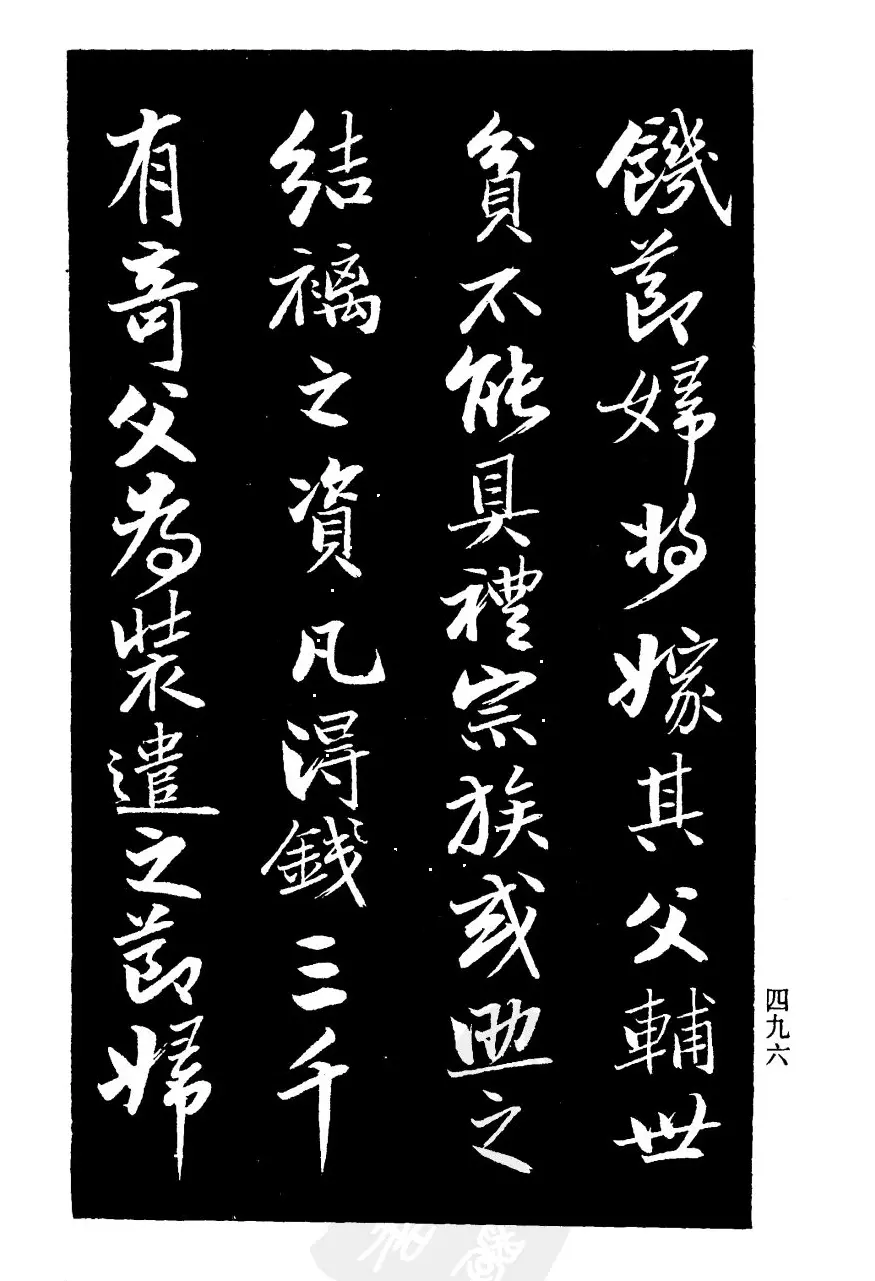 饑節婦将嫁其父輔世
貧不能具禮宗族或助之
結褵之資凡淂錢三千
有奇父為裝遣之節婦
四九六